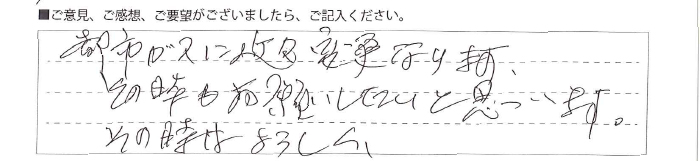 ■ご意見、ご感想、ご要望がございましたら、ご記入ください。
都市ガスに 変更なります、
その時もお願いしたいと思っています。
その時はよろしく、